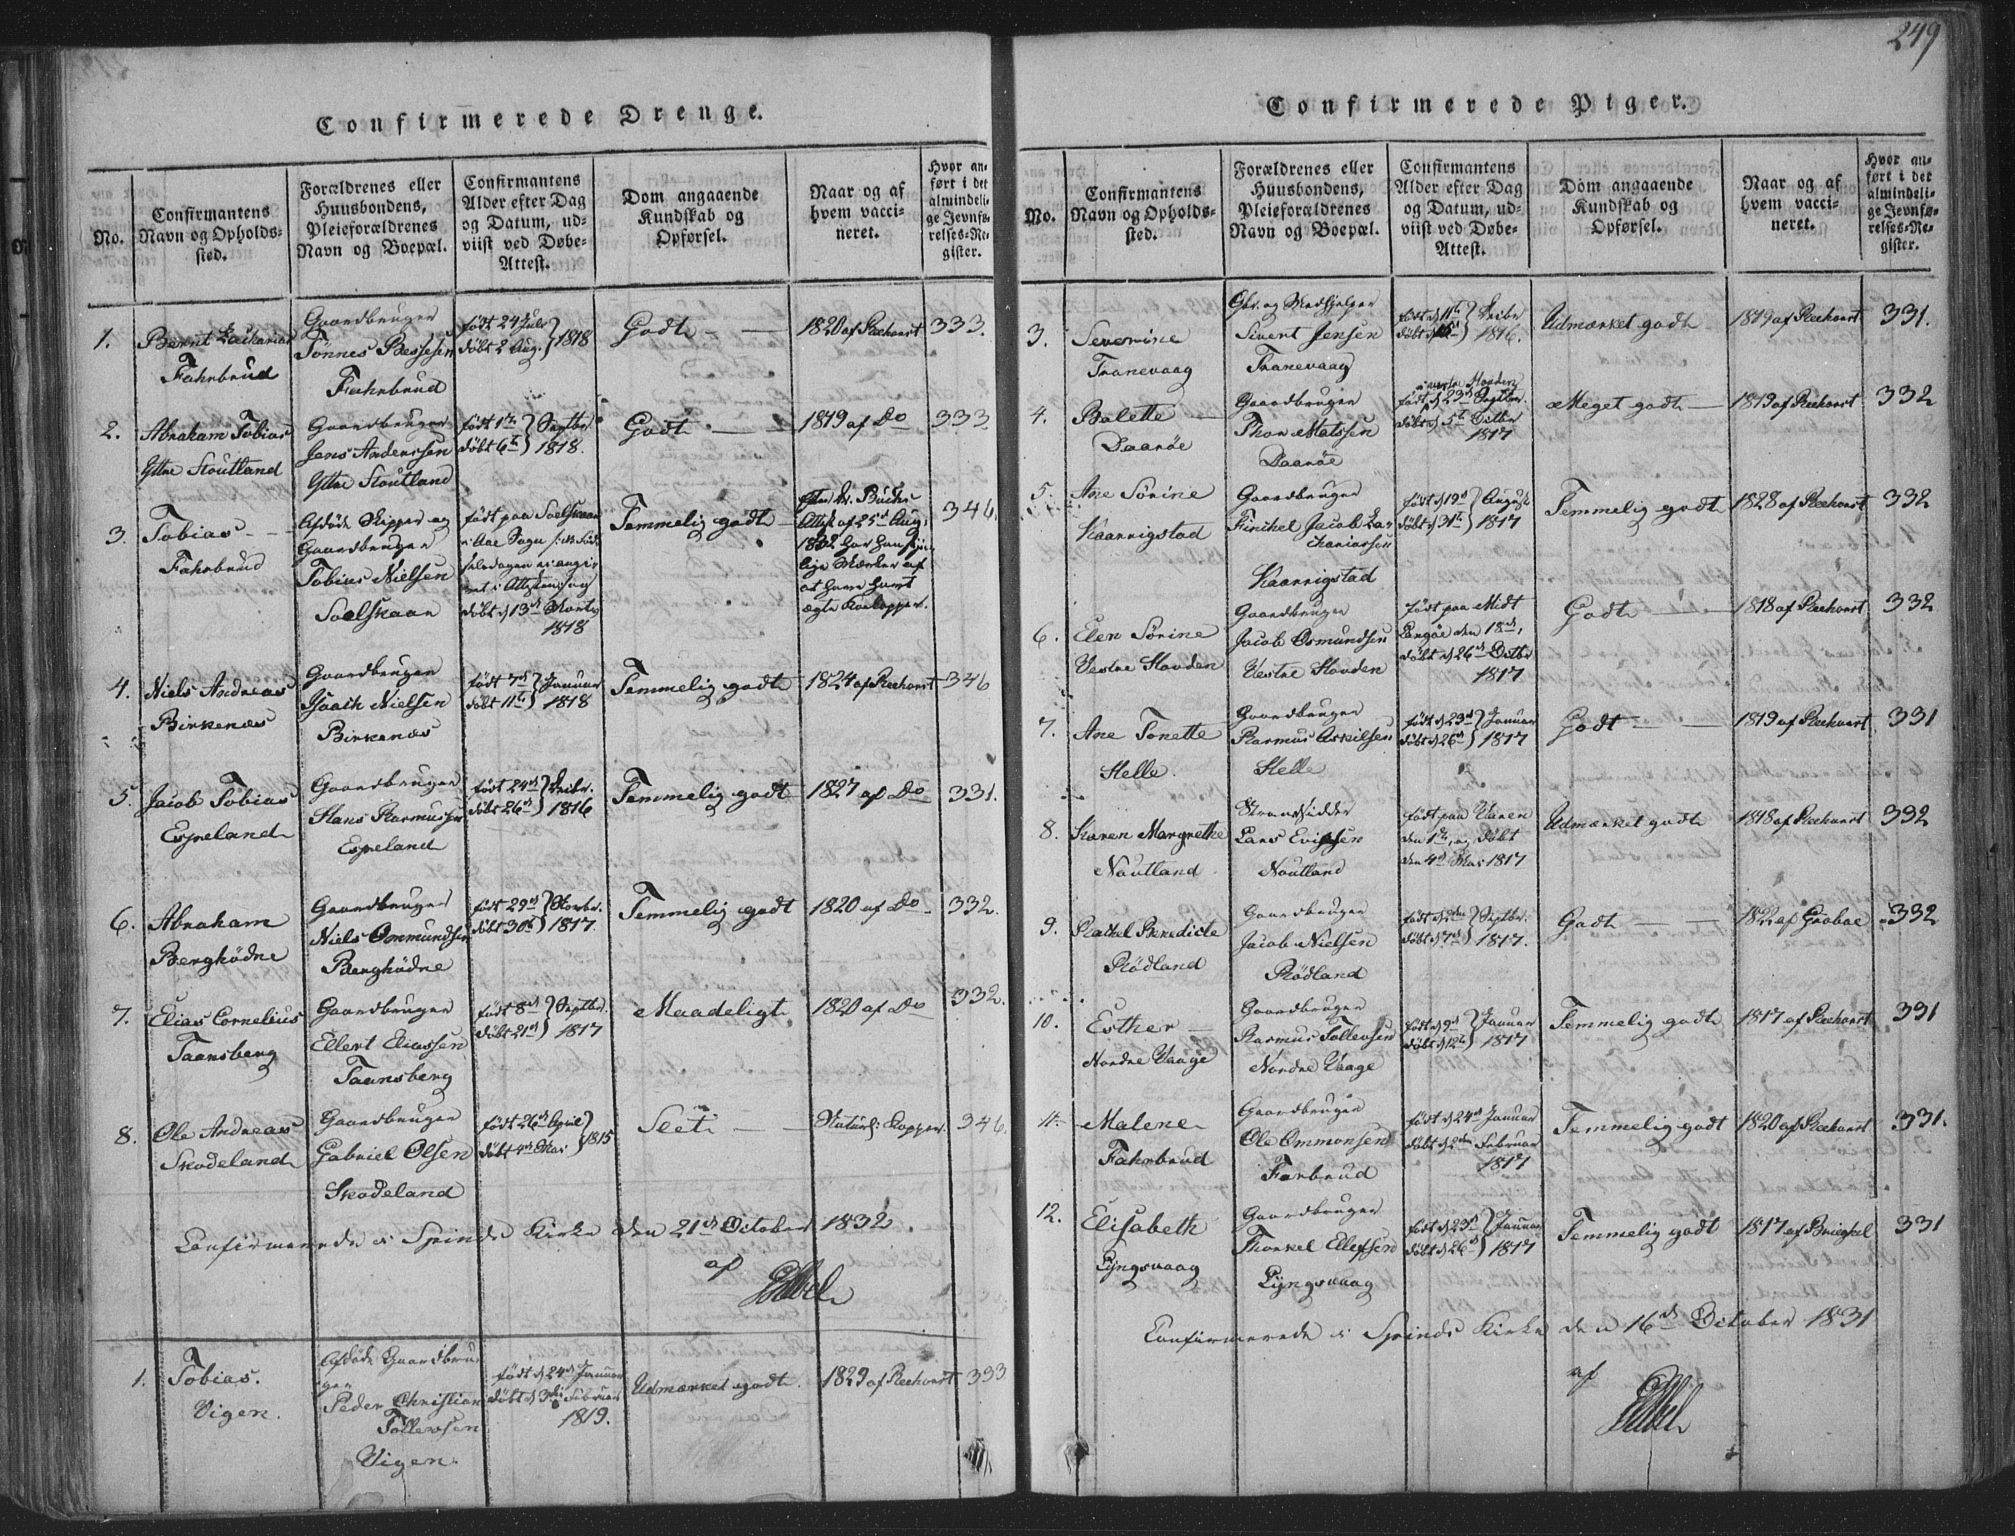 249
Confirmerede Drenge.
No.
Confirmantens
Navn og Opholds-
sted.
Forældrenes eller
Huusbondens,
Pleieforældrenes
Navn og Boepæl.
Confirmantens
Alder efter Dag
og Datum, ud-
viist ved Døbe-
Attest.
Dom angaaende
Kundskab og
Opførsel.
Naar og af
hvem vacci-
neret.
Hvor an-
ført i det
almindeli-
ge Jevnfø-
relses-Re-
gister.
1.
Bernt Zacharias
Fahrbrud
Gaardbruger
Tönnes Bessesen
Fahrbrud
født 24 Juli
døbt 2 Aug. 1818
Godt
1820 af Reehorst
333.
2.
Abraham Tobias
Ytre Stoutland
Gaardbruger
Jens Anderssen
Ytre Stoutland
født 1te Septbr
døbt 6te 1818.
Godt
1819 af Do
333.
3.
Tobias
Fahrbrud
Afdöde Skipper og
Gaardbruger
Tobias Nielsen
Soelskaar
født paa Soelskaar
i Aae Sogn
døbt d 13de Marts
1818
Temmelig godt
Attest af 25de Aug.
1832 har han
lige Mærker af
at have havt
ægte Koekopper.
346.
4.
Niels Andreas
Birkenæs
Gaardbruger
Isaach Nielsen
Birkenæs
født 7de Januar
døbt 11te 1818
Temmelig godt
1824 af Reehorst
346
5.
Jacob Tobias
Espeland
Gaardbruger
Hans Rasmussen
Espeland
født 24de Decbr.
døbt 26de 1816
Temmelig godt
1827 af Do
331.
6.
Abraham
Berghödne
Gaardbruger
Niels Ommundsen
Berghödne
født 29de Novbr.
døbt 30te 1817.
Temmelig godt
1820 af Do
332.
7.
Elias Cornelius
Taansberg
Gaardbruger
Ellert Eliassen
Taansberg
født 8de Septbr.
døbt 21de 1817
Maadeligt
1820 af Do
332.
8.
Ole Andreas
Skodeland
Gaardbruger
Gabriel Olsen
Skodeland
født 26de April
døbt 4de Mai 1815
Slet
Naturl: Kopper
346.
Confirmerede i Spinds Kirke den 21de October 1832.
af
1.
Tobias.
Vigen.
Afdöde Gaardbru-
ger
Peder Christian
Tollevsen
Vigen.
født d 24de Januar
døbt d 3die Februar
1819.
Udmærket godt.
1829 af Reehorst
333
Confirmerede Piger.
No.
Confirmantens
Navn og Opholds-
sted.
Forældrenes eller
Huusbondens,
Pleieforældrenes
Navn og Boepæl.
Confirmantens
Alder efter Dag
og Datum, ud-
viist ved Døbe-
Attest.
Dom angaaende
Kundskab og
Opførsel.
Naar og af
hvem vacci-
neret.
Hvor an-
ført i det
almindeli-
ge Jevnfø-
relses-Re-
gister.
3.
Severine
Tranevaag
Gbr. og Medhjelper
Sivert Jensen
Tranevaag
født d 11te Decbr
døbt d 1816.
Udmærket godt
1819 af Reehorst
331.
4.
Bolette
Daaröe
Gaardbruger
Thor Matssen
Daaröe
født d 23de Septbr.
døbt d 5te Octbr
1817
Meget godt
1819 af Reehorst
332
5.
Ane Sörine
Kaanrigstad
Gaardbruger
Jacob Za-
chariassen
Kaanrigstad
født d 19de August
døbt d 31te 1817
Temmelig godt
1828 af Reehorst
332
6.
Elen Sörine
Vestre Hovden
Gaardbruger
Jacob Osmundsen
Vestre Hovden
født paa Midt
Langöe den 18de,
døbt d 26de Octbr
1817
Godt
1818 af Reehorst
332
7.
Ane Tonette
Helle.
Gaardbruger
Rasmus Askilsen
Helle
født d 23de Januar
døbt d 26de 1817
Godt
1819 af Reehorst
331
8.
Karen Margrethe
Noutland
Strandsidder
Lars Evissen
Noutland
født paa Varen
den 1te, og døbt
den 4de Mai 1817
Udmærket godt
1818 af Reehorst
332
9.
Rachel Benedicte
Rödland
Gaardbruger
Jacob Nielsen
Rödland
født d 2den Septbr.
døbt d 7de 1817.
Godt
1822 af Grabae
332
10.
Esther
Nordre Vaage
Gaardbruger
Rasmus Tollevsen
Nordre Vaage
født d 9de Januar
døbt d 12te 1817
Temmelig godt
1817 af Reehorst
331
11.
Malene
Fahrbrud
Gaardbruger
Ole Ommonsen
Farbrud
født d 24de Januar
døbt d 2den Februar
1817
Temmelig godt
1820 af Reehorst
331.
12.
Elisabeth
Lyngsvaag
Gaardbruger
Thorkel Ellefsen
Lyngsvaag
født d 23de Januar
døbt d 26de 1817
Temmelig godt
1817 af Brieghel
331
Confirmerede i Spinds Kirke den 16de October 1831
af